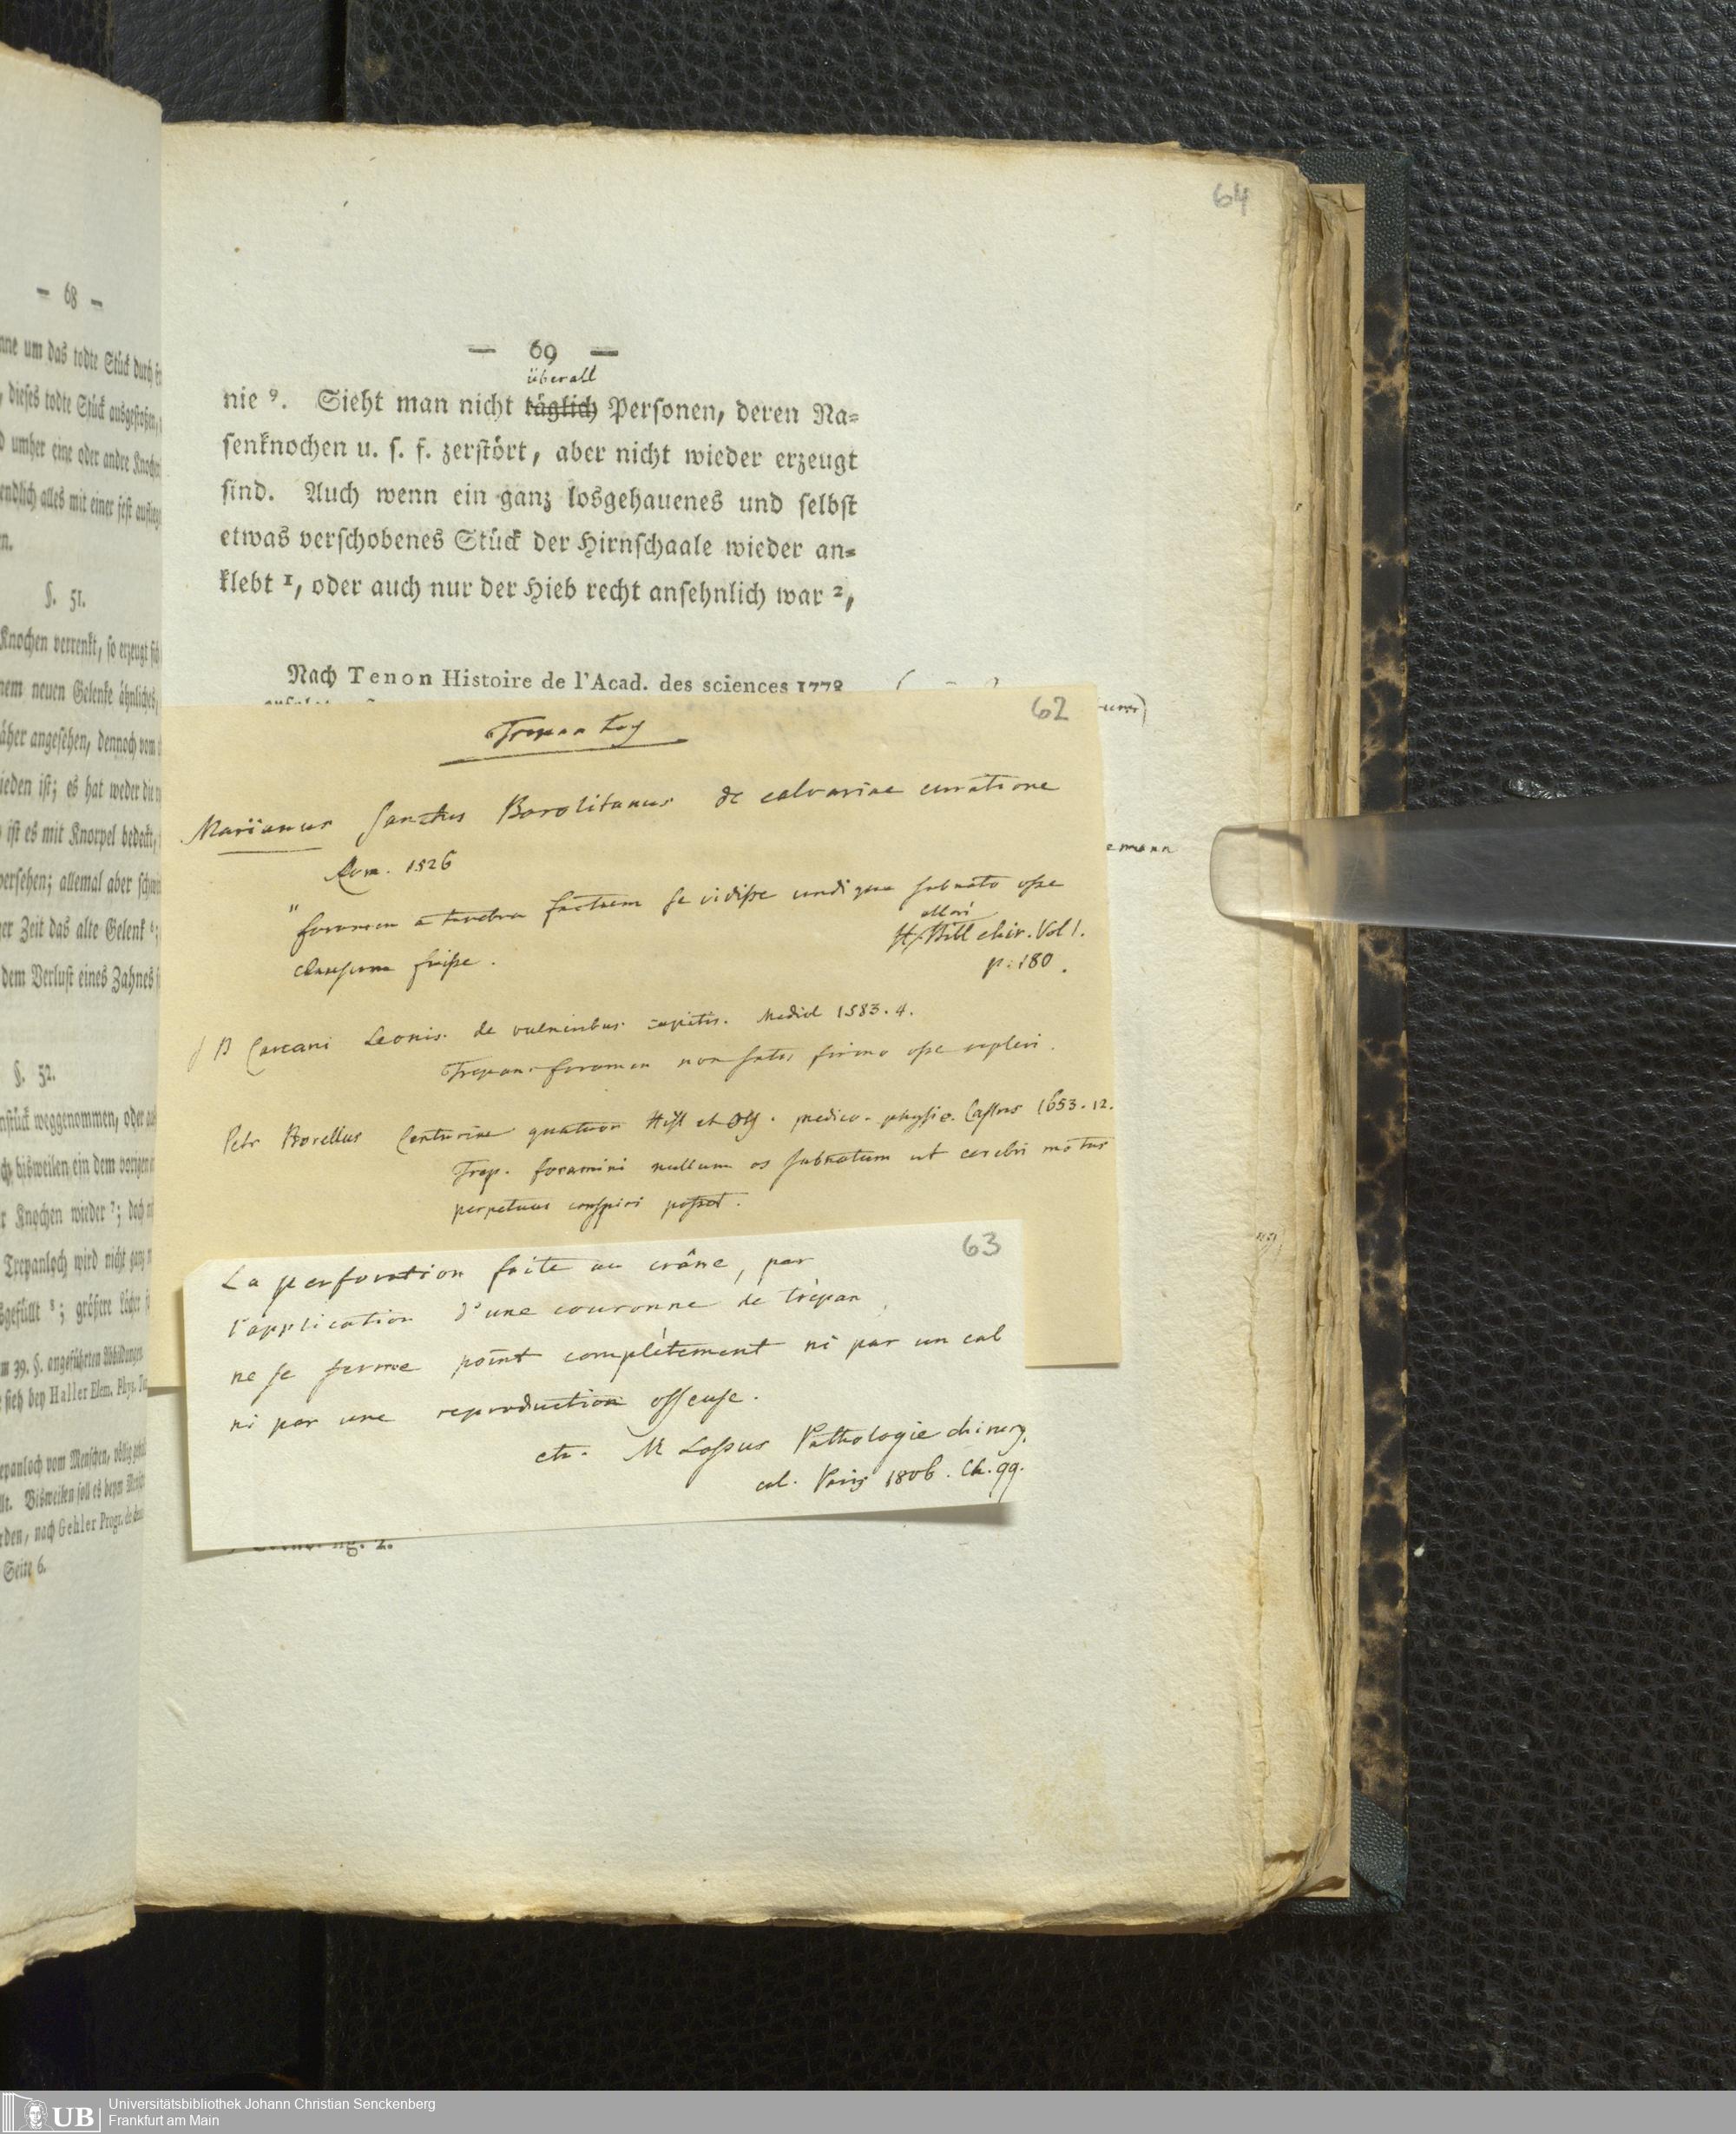 — 68 —
um das todte Stück durch
dieses todte Stück ausgestoßen,
umher eine oder andre
endlich alles mit einer
§. 51.
Knochen verrenkt, so erzeugt
neuen Gelenke ähnliches,
näher angesehen, dennoch vom
ist; es hat weder die
ist es mit Knorpel bedeckt,
versehen; allemal aber
Zeit das alte Gelenk 6;
dem Verlust eines Zahnes
§. 52.
weggenommen, oder
bisweilen ein dem vorigen
Knochen wieder 7; doch
Trepanloch wird nicht ganz
8; größere Löcher
39. §. angeführten Abbildungen
sieh bey Haller Elem. Phys.
vom Menschen, völlig
Bisweilen soll es beym
nach Gehler Progr. de
Seite 6.
64
— 69 —
überall
nie 9. Sieht man nicht täglich Personen, deren Na=
senknochen u. s. f. zerstört, aber nicht wieder erzeugt
sind. Auch wenn ein ganz losgehauenes und selbst
etwas verschobenes Stück der Hirnschaale wieder an=
klebt 1, oder auch nur der Hieb recht ansehnlich war 2,
Nach Tenon Histoire de l'Acad. des sciences 1778
62
Marianus Sanctus Barolitanus de calvariae curatione
Rom. 1526
" foramen a terebra factum se vidisse undique subnato osse
clausum fuisse.
Bibl chir. Vol I.
p. 180.
J B Carcani Leonis. de vulneribus capitis. Mediol 1583. 4.
Trepan. foramen non satis firmo osse repleri.
Petr Borellus Centuriae quatuor Hist et Obs. medico-physic. Castris 1653. 12.
Trep. foramini nullum os subnatum ut cerebri motus
perpetuus conspici posset.
63
La perforation faite au crâne, par
l'application d'une couronne de trépan,
ne se ferme point complètement ni par un cal
ni par une reproduction osseuse.
M Lassus Pathologie chirurg.
cal. Paris 1806. Ch. 99.
Universitätsbibliothek Johann Christian Senckenberg
Frankfurt am Main
UB